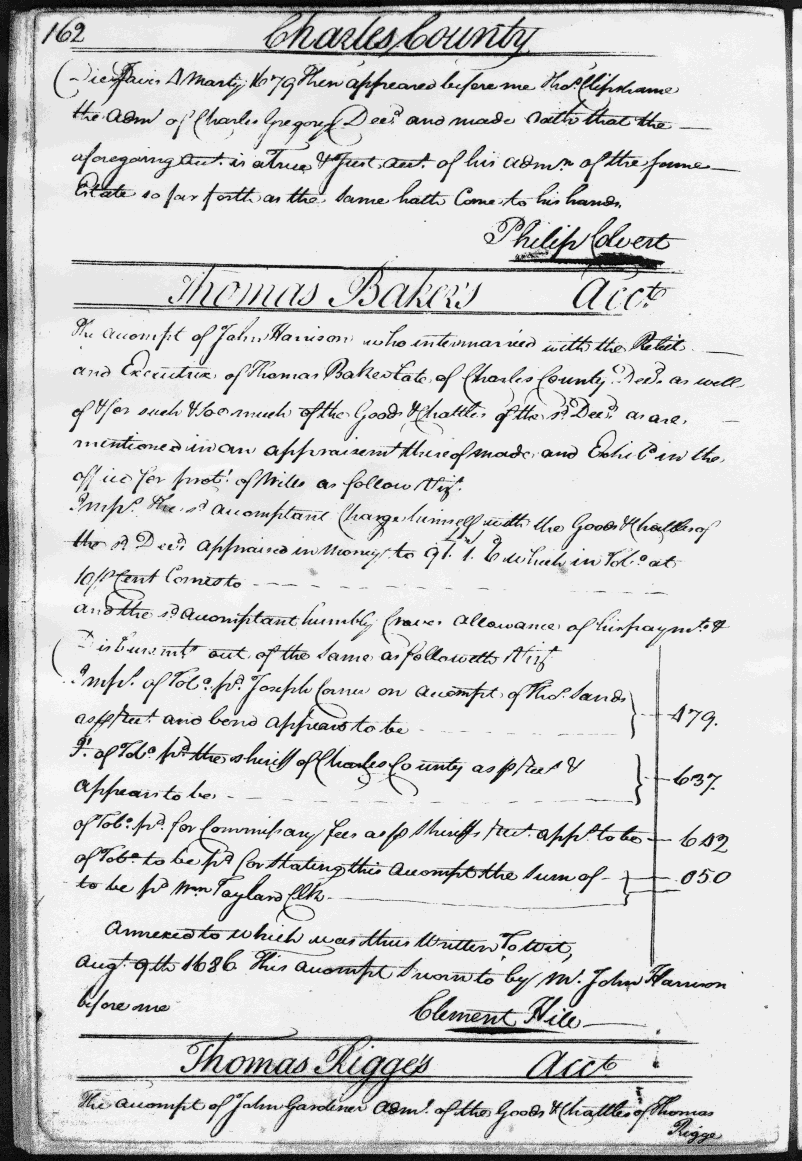 162
Charles County
Die Jovis 4 Marty 1679 Then appeared before me Tho.s Clipshame
the adm.r of Charles Gregory Dec.d and made oath that the
aforegoing acct. is a True & Just acct. of his adm.n of the same
Estate so far forth as the same hath Come to his hands.
Philip Calvert
Thomas Baker's Acct.
The accompt of John Harrison who intermarried with the Relict
and Executrix of Thomas Baker late of Charles County Dec.d as well
of & for such & soe much of the Goods & Chattles of the s.d Dec.d as are
mentioned in an appraisem.t thereof made and Exhib.d in the
office for prob.t of Wills as follow Viz.t
Imp.s The s.d accomptant Charge himself with the Goods & Chattles of
the s.d Dec.d appraised in money to 91. 1. 6 which in Tob.o at
10/ p Cent Comes to
and the s.d accomptant humbly Craves allowance of his paym.ts &
Disbursm.ts out of the same as followeth Viz.t
Imp.s of Tob.o p.d Joseph Corner on accompt of Tho.s Sands
as p Rect. and bond appears to be 479.
I.t of Tob.o p.d the sheriff of Charles County as p Rect. &
appears to be 637.
of Tob.o p.d for Commissary fees as p Sheriffs rect. app.s to be 642
of Tob.o to be p.d for Stating this accompt the Sum of 050
to be p.d Wm Taylard Clk
Annexed to which was thus Written To wit,
Aug.t 9th 1686 This accompt Sworn to by Mr. John Harrison
before me Clement Hill
Thomas Rigge's Acct.
The accompt of John Gardiner adm.r of the Goods & Chattles of Thomas
Rigge